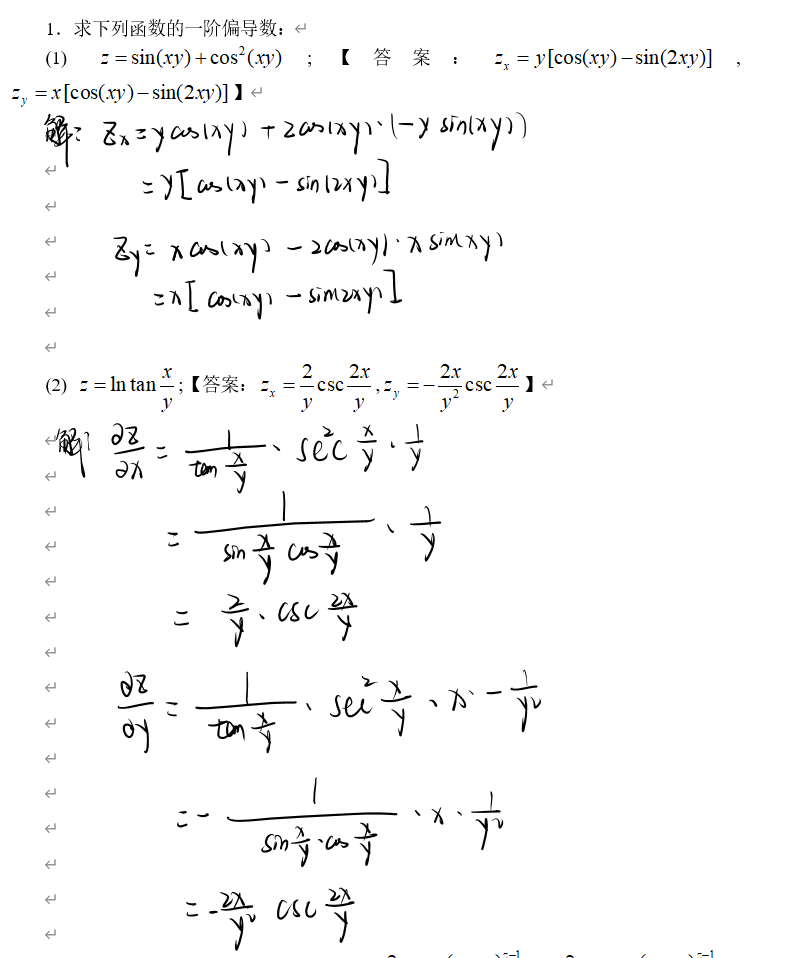 1．求下列函数的一阶偏导数：
(1) z = sin(xy) + cos²(xy) ；【答案： z_x = y[cos(xy) − sin(2xy)] ，
z_y = x[cos(xy) − sin(2xy)]】
解: Z_x = y cos(xy) + 2cos(xy)·(−y sin(xy))
= y[cos(xy) − sin(2xy)]
Z_y = x cos(xy) − 2cos(xy)·x sin(xy)
= x[cos(xy) − sin2xy)]
(2) z = ln tan x/y ;【答案： z_x = 2/y csc 2x/y , z_y = − 2x/y² csc 2x/y】
解: ∂z/∂x = 1/(tan x/y) · sec² x/y · 1/y
= 1/(sin x/y cos x/y) · 1/y
= 2/y · csc 2x/y
∂z/∂y = 1/(tan x/y) · sec² x/y · x · − 1/y²
= − 1/(sin x/y · cos x/y) · x · 1/y²
= − 2x/y² csc 2x/y